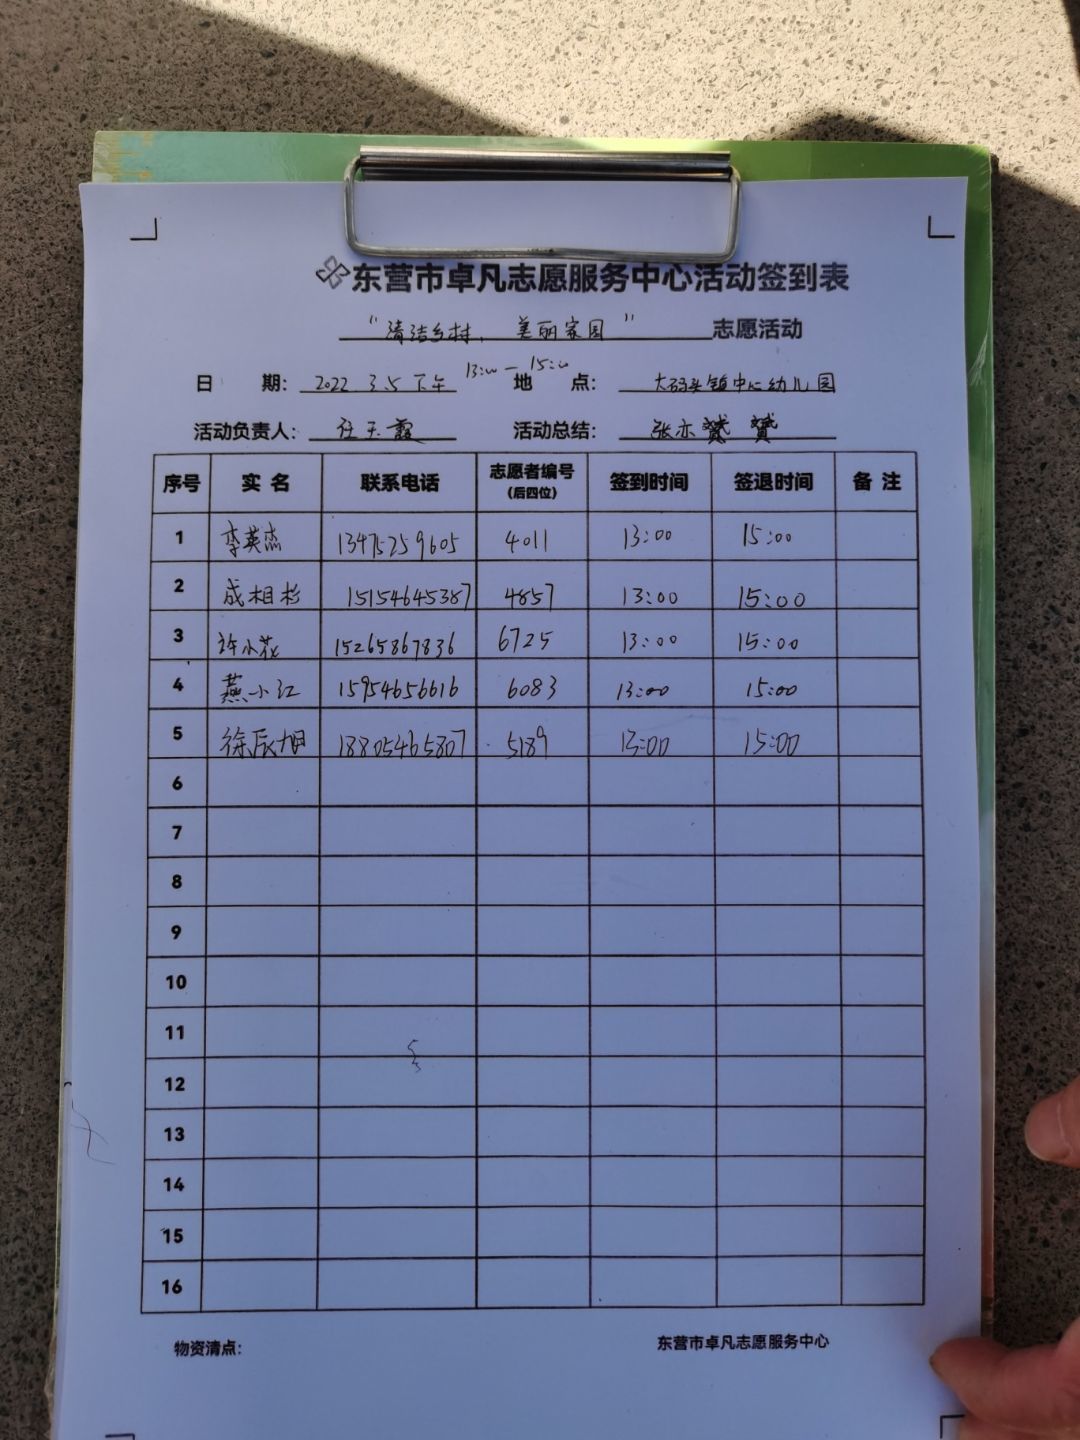 东营市卓凡志愿服务中心活动签到表
“清洁乡村、美丽家园”志愿活动
13:00—15:00
日 期: 2022 3.5 下午 地 点: 大码头镇中心幼儿园
活动负责人: 任玉霞 活动总结: 张亦 赟
序号 实名 联系电话 志愿者编号(后四位) 签到时间 签退时间 备注
1 李英杰 13475259605 4011 13:00 15:00
2 成相杉 15154645387 4857 13:00 15:00
3 许小花 15265867836 6725 13:00 15:00
4 燕小江 15954656616 6083 13:00 15:00
5 徐辰旭 18805465807 5189 13:00 15:00
6
7
8
9
10
11
12
13
14
15
16
物资清点: 东营市卓凡志愿服务中心